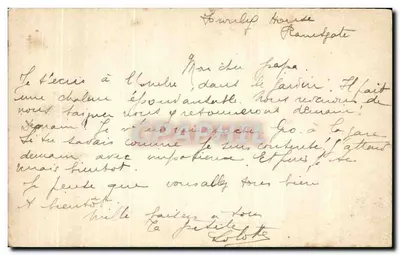 Townley House
Ramsgate
Mon cher papa.
Je t'ecris à l'ombre, dans le jardin. Il fait
une chaleur épouvantable. Nous revenons de
nous baigner. Nous y retournerons demain!
Je à la gare
Si tu savais comme je suis contente, j'attend
demain avec impatience. Et puis, je te
mais bientôt.
Je pense que vous allez tous bien
A bientôt.
Mille baisers à tous
Ta petite
Lolotte